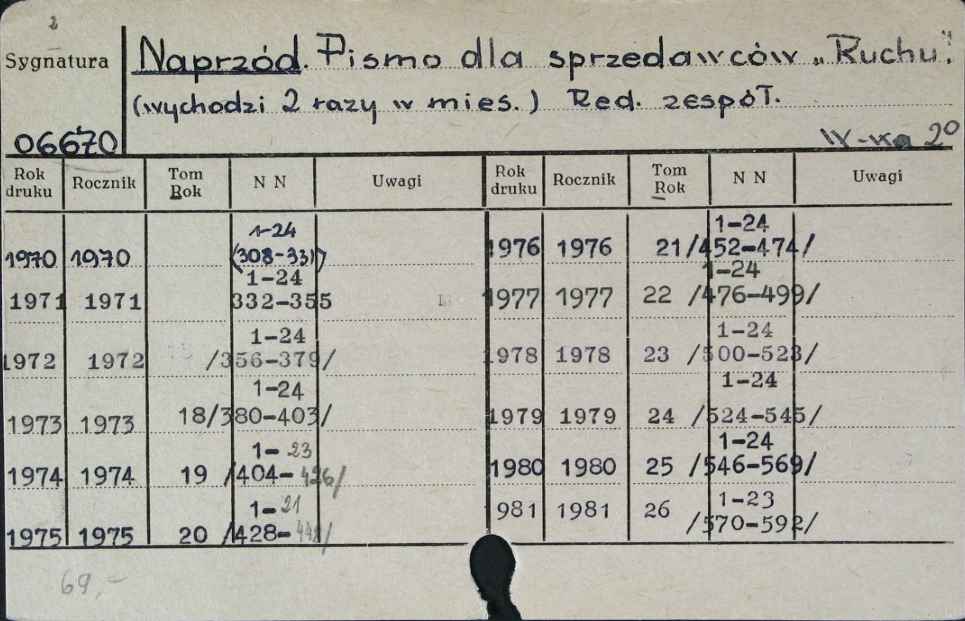 2
Sygnatura
Naprzód. Pismo dla sprzedawców „Ruchu".
(wychodzi 2 razy w mies.) Red. zespół.
06670
W-wa 2⁰
Rok druku Rocznik Tom Rok N N Uwagi Rok druku Rocznik Tom Rok N N Uwagi
1970 1970 1-24 (308-331) 1976 1976 21 1-24 /452-474/
1971 1971 1-24 332-355 1977 1977 22 1-24 /476-499/
1972 1972 1-24 /356-379/ 1978 1978 23 1-24 /500-523/
1973 1973 18 1-24 /380-403/ 1979 1979 24 1-24 /524-545/
1974 1974 19 1-23 /404-426/ 1980 1980 25 1-24 /546-569/
1975 1975 20 1-21 /428- 981 1981 26 1-23 /570-592/
69,-